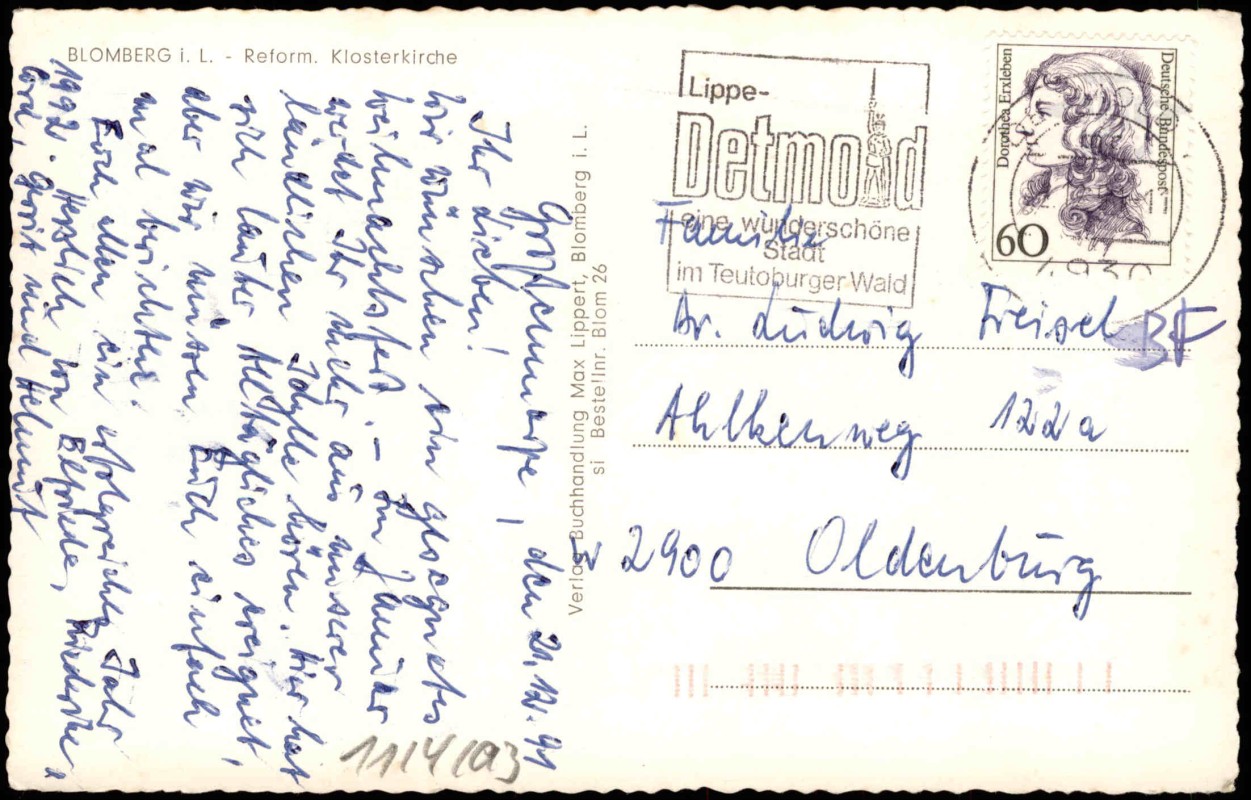 BLOMBERG i. L. - Reform. Klosterkirche
den 21.12.91
Ihr Lieben!
Wir wünschen ein gesegnetes
Weihnachtsfest. - Im Januar
werdet Ihr mehr aus unserer
ländlichen Idylle hören. Hier hat
sich lauter Alltägliches ereignet,
aber wir müssen Euch einfach
mal berichten.
Euch allen ein erfolgreiches Jahr
1992. Herzlich von Elfriede, Friederike,
Gerrit und Helmut
Verlag Buchhandlung Max Lippert, Blomberg i. L.
si Bestellnr. Blom 26
Lippe-
Detmold
eine wunderschöne
Stadt
im Teutoburger Wald
Dorothea Erxleben
Deutsche Bundespost
60
4930
Familie
Dr. Ludwig Freisel
BF
Ahlkenweg 122a
W 2900 Oldenburg